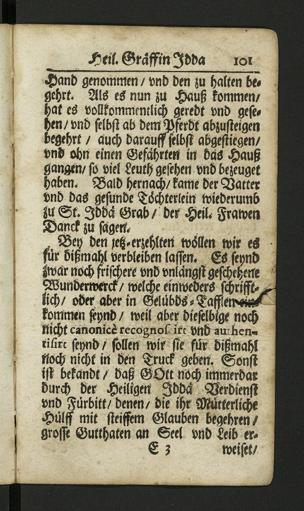 Heil. Gräffin Jdda 101
Hand genommen / vnd den zu halten be-
gehrt. Als es nun zu Hauß kommen /
hat es vollkommentlich geredt vnd gese-
hen / vnd selbst ab dem Pferdt abzusteigen
begehrt / auch darauff selbst abgestiegen /
vnd ohn einen Gefährten in das Hauß
gangen / so viel Leuth gesehen vnd bezeuget
haben. Bald hernach / kame der Vatter
vnd das gesunde Töchterlein wiederumb
zu St. Jddä Grab / der Heil. Frawen
Danck zu sagen.
Bey den jetz-erzehlten wöllen wir es
für dißmahl verbleiben lassen. Es seynd
zwar noch frischere vnd vnlängst geschehene
Wunderwerck / welche einweders schrifft-
lich / oder aber in Gelübds-Tafflen ein-
kommen seynd / weil aber dieselbige noch
nicht canonicè recognoscirt vnd authen-
tisirt seynd / sollen wir sie für dißmahl
noch nicht in den Truck geben. Sonst
ist bekandt / daß GOtt noch immerdar
durch der Heiligen Jddä Verdienst
vnd Fürbitt / denen / die ihr Mütterliche
Hülff mit steiffem Glauben begehren /
grosse Gutthaten an Seel vnd Leib er-
E 3 weiset /